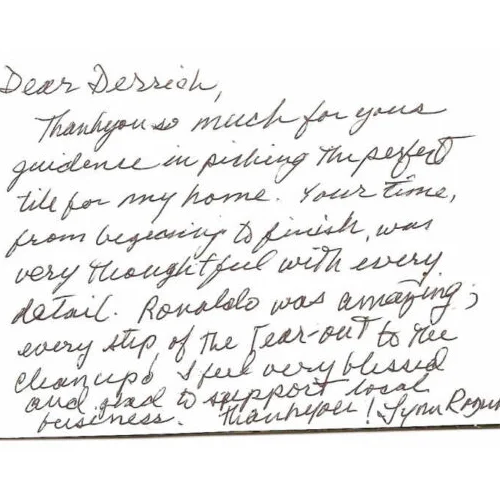 Dear Derrick,
Thankyou so much for your
guidence in picking the perfect
tile for my home. Your time,
from begining to finish, was
very thoughtful with every
detail. Ronaldo was amazing;
every step of the tear-out to the
cleanups! I feel very blessed
and glad to support local
business. Thankyou! Lynn